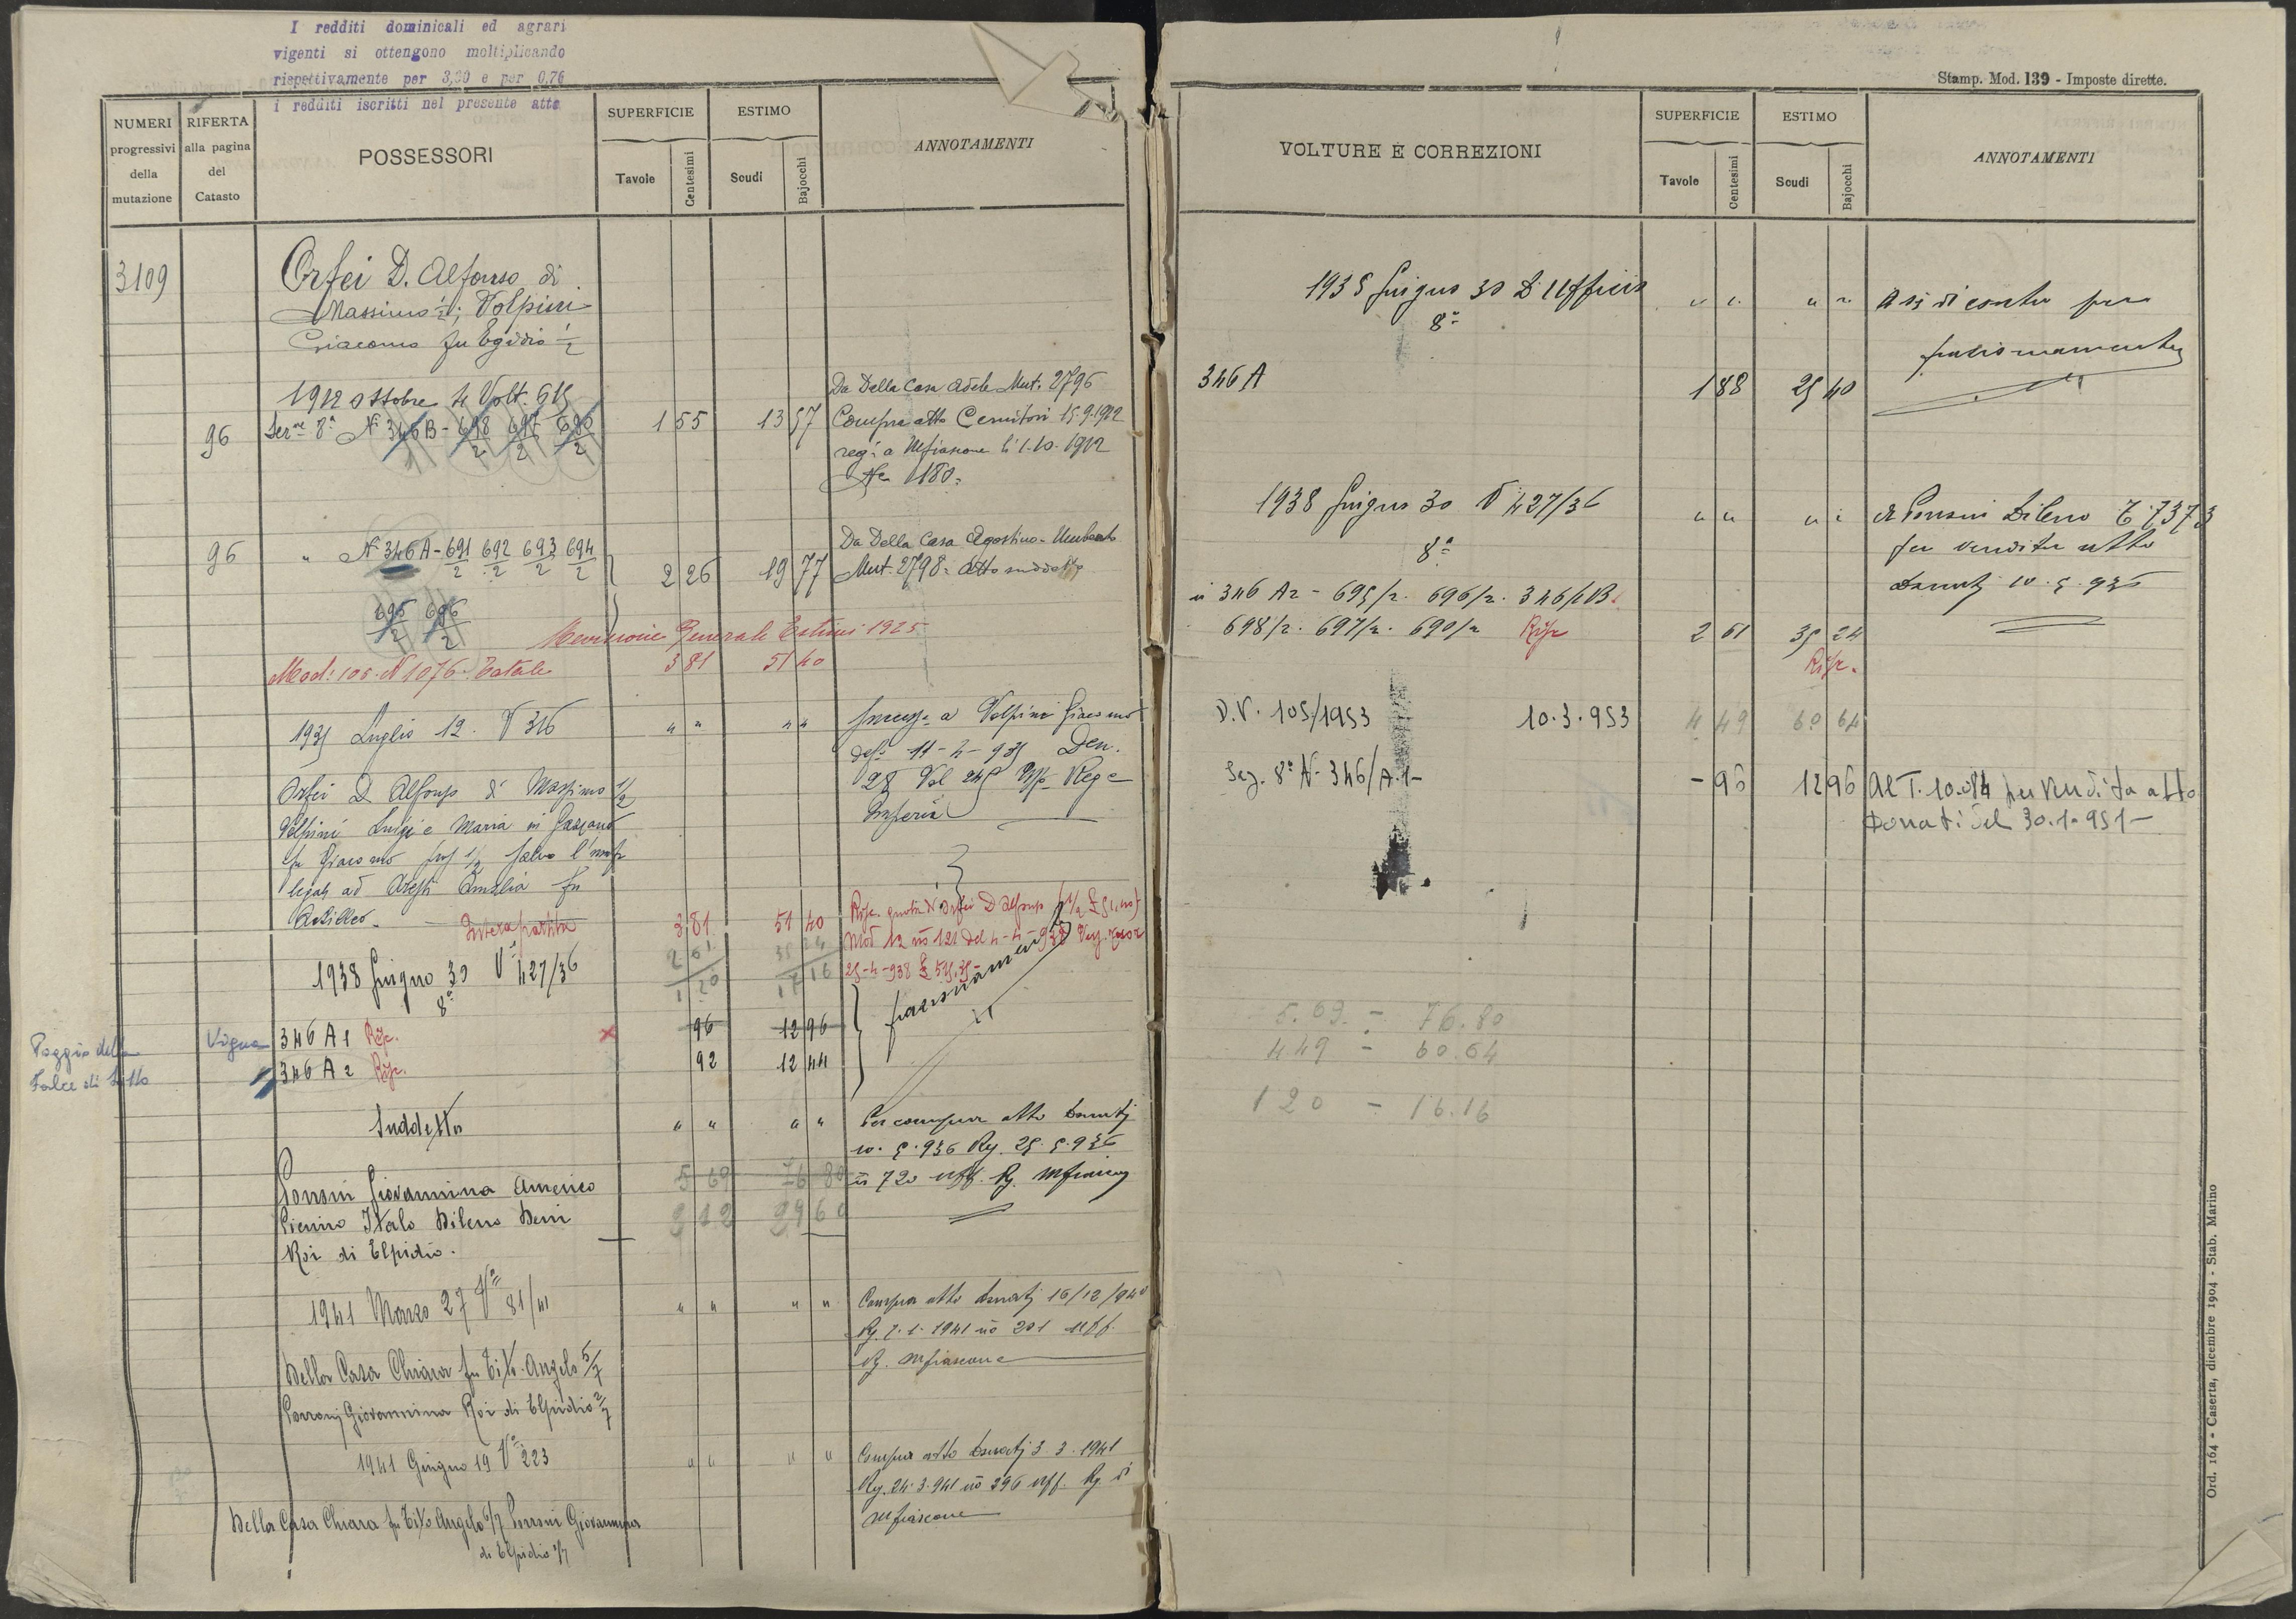 I redditi dominicali ed agrari
vigenti si ottengono moltiplicando
rispettivamente per 3,20 e per 0,76
i redditi iscritti nel presente atto
NUMERI
progressivi
della
mutazione
RIFERTA
alla pagina
del
Catasto
POSSESSORI
SUPERFICIE
Tavole
Centesimi
ESTIMO
Scudi
Bajocchi
ANNOTAMENTI
3109
Orfei D. Alfonso di
Massimo ½; Volpini
Giacomo fu Egidio ½
1912 ottobre 4 Volt. 615
96 Sez.ne 8ª N. 346B - 698/2 697/2 690/2 1 55 13 57
Da Della Casa Adele Mut. 2796
Compra atto Cernitori 15.9.1912
reg. a Mfiascone li 1.10.1912
No 180.
96 " N. 346A - 691/2 692/2 693/2 694/2 2 26 19 77
695/2 696/2
Da Della Casa Agostino - Umberto
Mut. 2798. Atto suddetto
Revisione Generale Estimi 1925
Mod. 108. N 1076. Totale 3 81 51 40
1935 Luglio 12. V 316 " " " "
Volpini Giacomo
11-4-935 Den.
28 Vol 245
Orfei D Alfonso di Massimo 1/2
Volpini Luigi e Maria in
fu Giacomo 1/2 salvo l'usuf
legale ad Amalia fu
Achilleo.
Intera partita 3 81 51 40
Risc. quota di Orfei D Alfonso
2 61 35 24
1 20 16 16
1938 Giugno 30 V 427/36
8ª
346 A 1 Risc. 96 12 96
346 A 2 Risc. 92 12 44
frazionamento
Vigna
Poggio della
Falce di Sotto
Suddetto " " " "
Per compra atto Donati
10.5.936 Rg. 25.5.936
n 720 uff. Rg. Mfiascone
Porroni Giovannina Americo 5 69 76 80
Pierino Italo Dileno Deni 2 12 29 60
Roi di Elpidio.
1941 Marzo 27 Vª 81/41 " " " "
Compra atto Donati 16/12/940
Rg. 7.1.1941 no 201 uff.
Rg. Mfiascone
Della Casa Chiara fu Tito Angelo 5/7
Porroni Giovannina Roi di Elpidio 2/7
1941 Giugno 19 Vª 223 " " " "
Compra atto Donati 3.3.1941
Rg. 24.3.941 no 396 uff. Rg. di
Mfiascone
Della Casa Chiara fu Tito Angelo 6/7 Porroni Giovannina
di Elpidio 1/7
Stamp. Mod. 139 - Imposte dirette.
VOLTURE E CORREZIONI
SUPERFICIE
Tavole
Centesimi
ESTIMO
Scudi
Bajocchi
ANNOTAMENTI
1938 Giugno 30 D'Ufficio " " " "
8ª
frazionamento
346 A 1 88 25 40
1938 Giugno 30 V 427/36 " " " "
8ª
A Porroni Dileno T. 7373
per vendita atto
Donati 10.5.936
n 346 A2 - 695/2. 696/2. 346/1B.
698/2. 697/2. 690/2 Risc 2 61 35 24
Risc.
D.V. 105/1953 10.3.953 4 49 60 64
Sez. 8ª N. 346/A.1- - 96 12 96
Al T. 10.014 per vendita atto
Donati del 30.1.951-
5.69 - 76.80
4.49 - 60.64
1 20 - 16.16
Ord. 164 - Caserta, dicembre 1904 - Stab. Marino